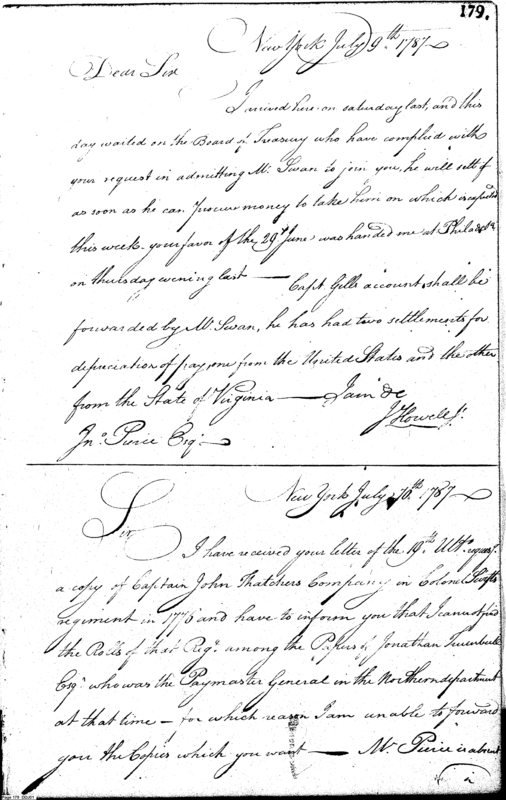 179.
New York July 9.th 1787
Dear Sir
I arrived here on saturday last, and this
day waited on the Board of Treasury who have complied with
your request in admitting Mr. Swan to join you, he will sett off
as soon as he can procure money to take him on which is expected
this week - your favor of the 29th June was handed me at Philada.
on thursday evening last — Capt. Gells account shall be
forwarded by Mr. Swan, he has had two settlements for
depreciation of pay, one from the United States and the other
from the State of Virginia — I am &c
J Howell Jr.
Jno. Pierce Esqr.
New York July 10.th 1787
Sir
I have received your letter of the 19.th Ulto. requestg.
a copy of Captain John Thatchers Company in Colonel Swifts
regiment in 1776 and have to inform you that I cannot find
the Rolls of that Regt. among the Papers of Jonathan Trumbull
Esqr. who was the Paymaster General in the Northern department
at that time — for which reason I am unable to forward
you the Copies which you want — Mr. Pierce is absent